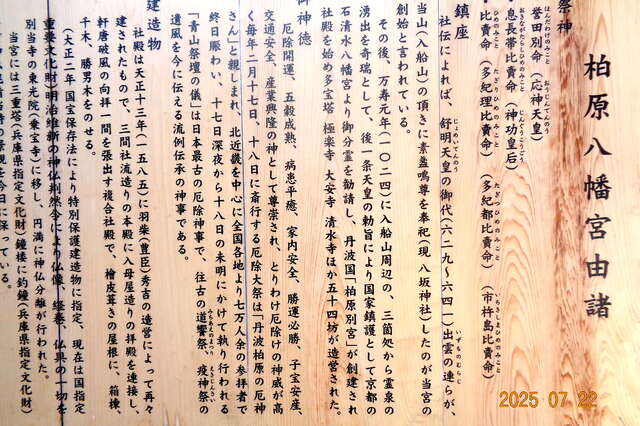 柏原八幡宮由諸
祭神
誉田別命(応神天皇)
ほんだわけのみこと おうじんてんのう
息長帯比売命(神功皇后)
おきながたらしひめのみこと じんぐうこうごう
比売命(多紀理比賣命)(多紀都比賣命)(市杵島比賣命)
ひめのみこと たぎりひめのみこと たぎつひめのみこと いちきしまひめのみこと
鎮座
社伝によれば、舒明天皇の御代(六二九~六四一)出雲の連らが、
じょめいてんのう いずものむらじ
当山(入船山)の頂きに素盈嗚尊を奉祀(現 八坂神社)したのが当宮の
創始と言われている。
その後、万寿元年(一〇二四)に入船山周辺の、三箇処から霊泉の
湧出を奇瑞として、後一条天皇の勅旨により国家鎮護として京都の
石清水八幡宮より御分霊を勧請し、丹波国「柏原別宮」が創建され
社殿を始め多宝塔 極楽寺 大安寺 清水寺ほか五十四坊が造営された。
御神徳
厄除開運、五穀成熟、病患平癒、家内安全、勝運必勝、子宝安産、
交通安全、産業興隆の神として尊崇され、とりわけ厄除けの神威が高
く毎年二月十七日、十八日に斎行する厄除大祭は「丹波柏原の厄神
さん」と親しまれ、北近畿を中心に全国各地より七万人余の参拝者で
終日賑わい、十七日深夜から十八日の未明にかけて執り行われる
「青山祭壇の儀」は日本最古の厄除神事で、往古の道饗祭、疫神祭の
みちあえのまつり えきじんさい
遺風を今に伝える流例伝承の神事である。
建造物
社殿は天正十三年(一五八五)に羽柴(豊臣)秀吉の造営によって再々
建されたもので、三間社流造りの本殿に入母屋造りの拝殿を連接し、
軒唐破風の向拝一間を張出す複合社殿で、檜皮葺きの屋根に、箱棟、
千木、勝男木をのせる。
(大正二年国宝保存法により特別保護建造物に指定、現在は国指定
重要文化財)明治維新の神仏判然令により仏像、経巻、仏具の一切を
別当寺の東光院(乗宝寺)に移し、円満に神仏分離が行われた。
当宮には三重塔(兵庫県指定文化財)鐘楼に釣鐘(兵庫県指定文化財)
景観を今日に保っている。
2025 07 22